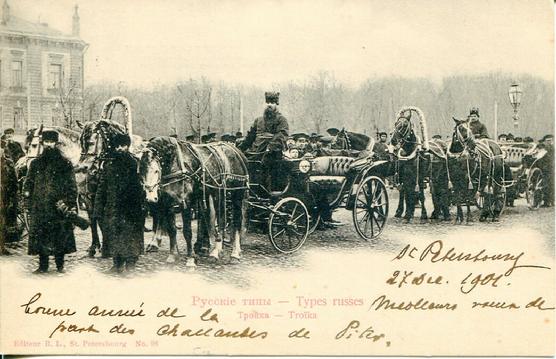 St Petersbourg
27 Dec. 1901.
Русскіе типы — Types russes
Meilleurs vœux de
Тройка — Troïka
bonne année de la
part des Challantes de Piter.
Editeur B. L., St. Petersbourg No. 98